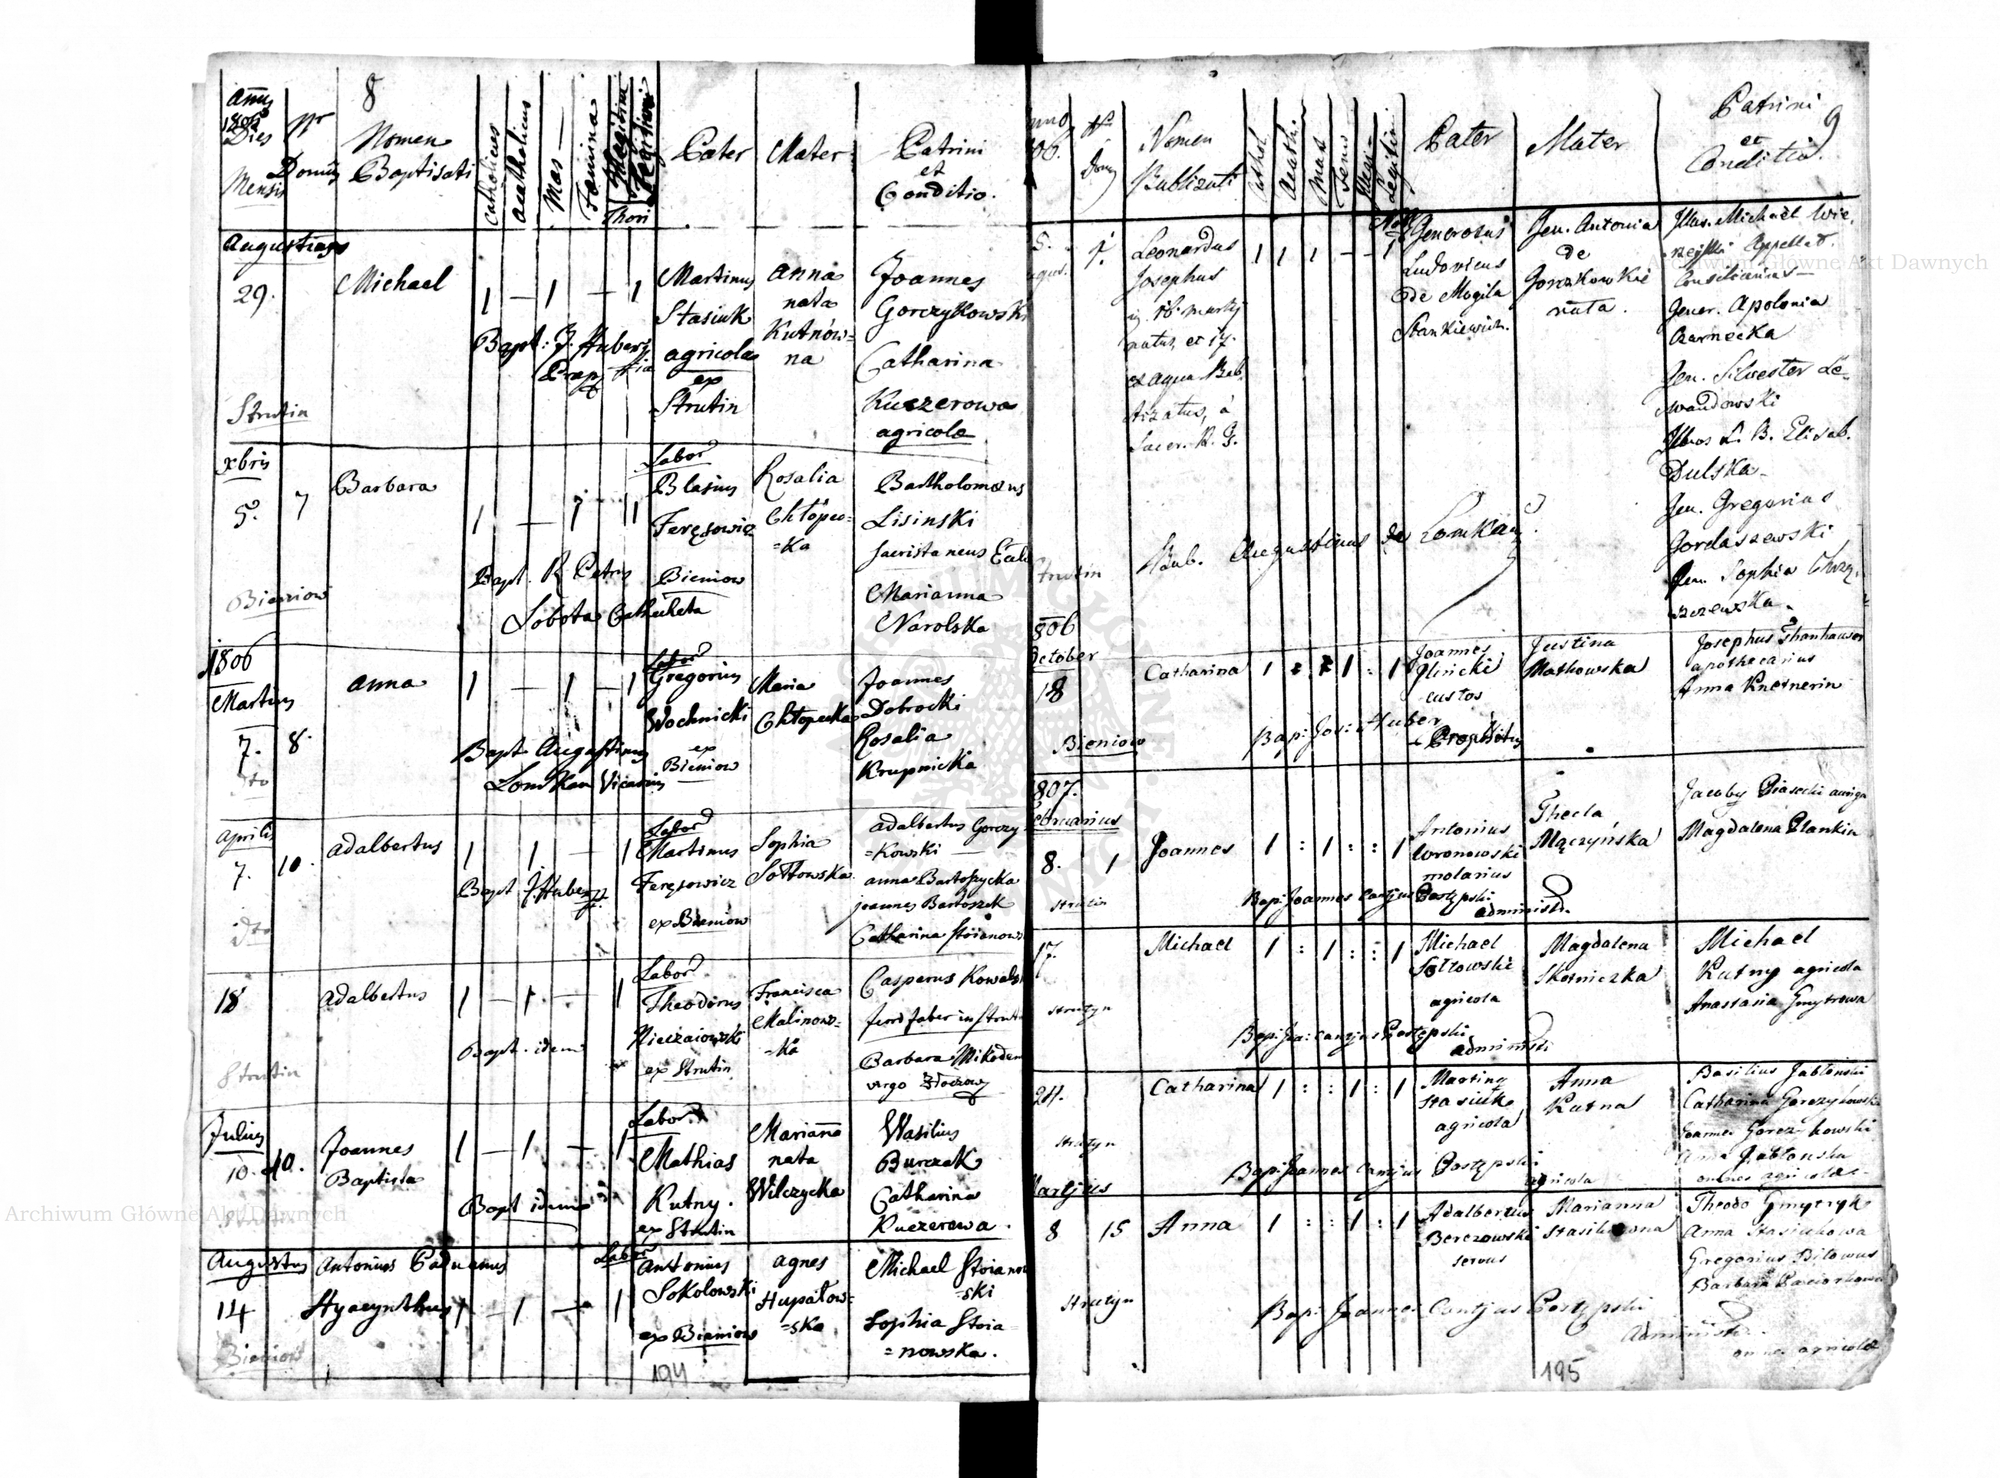 8
Dies
Mensis
Nr
Domus
Nomen
Baptisati
Catholicus
Acatholicus
Mas
Femina
Thori
Pater
Mater
Patrini
et
Conditio.
Augustus
29.
Michael
1 — 1 — 1
Martinus
Stasiuk
agricola
ex
Strutin
Anna
nata
Kutnow=
na
Joannes
Gorczykowski
Catharina
Kuczerowa
agricolæ
Bapt: J. Huber
Strutin
xbris
5. 7
Barbara
1 — 1 1
Labor
Blasius
Feręsowicz
Bieniow
Rosalia
Chłopec=
=ka
Bartholomæus
Lisinski
Marianna
Narolska
Bapt. R Petrus
Lobota Catecheta
Bieniow
1806
Martius
7. 8.
dto
Anna
1 — 1 — 1
Labor
Gregorius
Wochnicki
ex
Bieniow
Maria
Chłopecka
Joannes
Dobrocki
Rosalia
Krupnicka
Bapt Augustinus
Lomkan Vicarius
Aprilis
7. 10.
dto
Adalbertus
1 1 — 1
Labor
Martinus
Feręsowicz
ex Bieniow
Sophia
Sołtowska
Adalbertus Gorczy
=kowski
Anna Bartoszycka
Joannes Bartoszek
Catharina Stoianow
Bapt J. Huber
18
Strutin
Adalbertus
1 — 1 — 1
Labor
Theodorus
ex Strutin
Francisca
Malinow=
=ka
Casperus Kowalski
Barbara Mikodem
virgo Złoczow
Bapt. idem
Julius
10. 40.
Joannes
Baptista
1 — 1 — 1
Labor.
Mathias
Kutny.
ex Strutin
Marianna
nata
Wilczycka
Wasilius
Burczak
Catharina
Kuczerowa.
Bapt idem
Augustus
14
Bieniow
Antonius Paduanus
Hyacynthus
1 — 1 — 1
Labor
Antonius
Sokolowski
ex Bieniow
Agnes
Hupałow=
=ska
Michael Stoianow
ski
Sophia Stoia=
=nowska.
194
9
Nomen
Babtizati
Cathol.
Acath.
Mas
Pater
Mater
Patrini
et
Conditio.
5. 1.
Leonardus
Josephus
natus, et 17.
ex aqua Bab
tizatus, a
Sacer. R. G.
1 1 1 — — 1
Generosus
Ludovicus
de Mogila
Stankiewicz.
Gen. Antonia
de
Gorzkowskie
nata.
Illus. Michael Wie
Appellat.
Consiliarius
Gener. Apolonia
Czarnecka
Gen. Silvester Le=
wandowski
Illus L. B. Elisab.
Dulska
Gen. Gregorius
Gordaszewski
Gen. Sophia
Strutin
Bab. Augustinus de Lomkan
1806
October
18
Bieniow
Catharina
1 : : 1 : 1
Joannes
Ilnicki
custos
Justina
Mathowska
Josephus Thanhauser
apothecarius
Anna Knernerin
Bap: Jos: Huber
Præpositus
1807.
8. 1
Strutin
Joannes
1 : 1 : : 1
Antonius
Wronowski
molarius
Thecla
Mączyńska
Jacoby Piasecki auriga
Magdalena Plankin
Bap: Joannes Cantjus Postępski
Administr.
17.
Strutyn
Michael
1 : 1 : : 1
Michael
Sołtowski
agricola
Magdalena
Skotniczka
Michael
Kutny agricola
Anastasia Gmytrowa
Bap: Joa: Cantjus Postępski
Administr.
24.
Strutyn
Catharina
1 : : 1 : 1
Martinus
Stasiuk
agricola
Anna
Kutna
Basilius Jabłoński
Catharina Gorczykowska
Joannes Gorczykowski
Anna Jabłonska
omnes agricolæ
Bap: Joannes Cantjus Postępski
Martjus
8 15
Strutyn
Anna
1 : : 1 : 1
Adalbertus
Berezowski
servus
Marianna
Stasiukowna
Theodo Gmytryk
Anna Stasiukowa
Gregorius Bilowus
Barbara
Bap: Joannes Cantjus Postępski
Administr.
omnes agricolæ
195
Archiwum Główne Akt Dawnych
Archiwum Główne Akt Dawnych